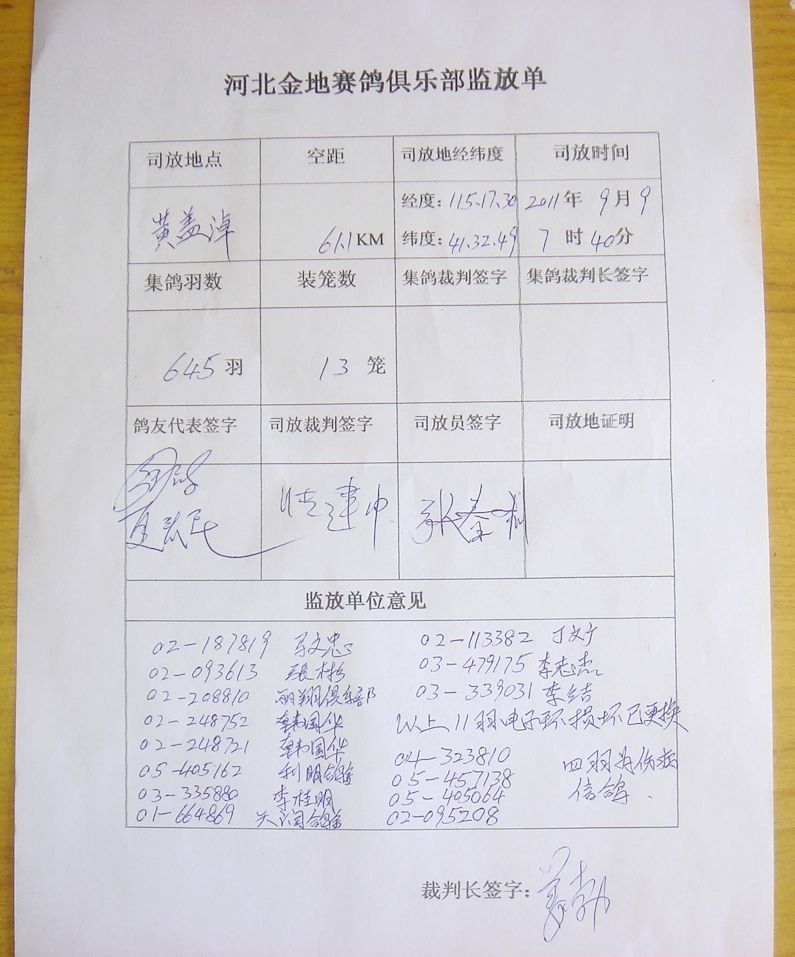 河北金地赛鸽俱乐部监放单
司放地点 空距 司放地经纬度 司放时间
黄盖淖 61.1KM 经度：115.17.30 2011年 9月9
纬度：41.32.49 7时40分
集鸽羽数 装笼数 集鸽裁判签字 集鸽裁判长签字
645羽 13笼
鸽友代表签字 司放裁判签字 司放员签字 司放地证明
监放单位意见
02-187819 马文忠 02-113382 丁文宁
02-093613 张彬 03-479175 李志杰
02-208810 丽翔俱乐部 03-339031 李结
02-248752 韩国华 以上11羽电子环损坏已更换
02-248721 韩国华 04-323810 四羽为伤病
05-405162 利明鸽舍 05-457138 信鸽.
03-335880 李桂明 05-405064
01-664869 鸽舍 02-095208
裁判长签字：